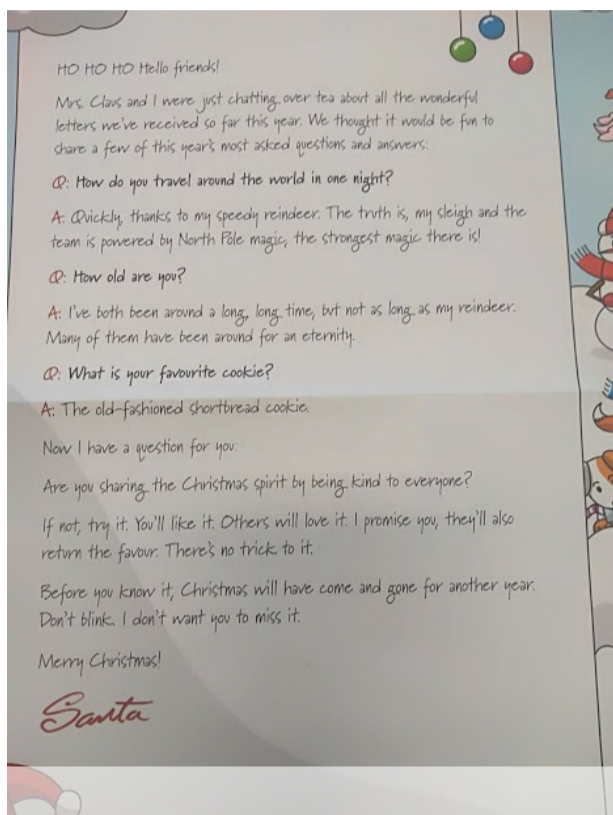 HO HO HO Hello friends!
Mrs. Claus and I were just chatting over tea about all the wonderful
letters we've received so far this year. We thought it would be fun to
share a few of this year's most asked questions and answers:
Q: How do you travel around the world in one night?
A: Quickly, thanks to my speedy reindeer. The truth is, my sleigh and the
team is powered by North Pole magic, the strongest magic there is!
Q: How old are you?
A: I've both been around a long, long time, but not as long as my reindeer.
Many of them have been around for an eternity.
Q: What is your favourite cookie?
A: The old-fashioned shortbread cookie.
Now I have a question for you:
Are you sharing the Christmas spirit by being kind to everyone?
If not, try it. You'll like it. Others will love it. I promise you, they'll also
return the favour. There's no trick to it.
Before you know it, Christmas will have come and gone for another year.
Don't blink. I don't want you to miss it.
Merry Christmas!
Santa